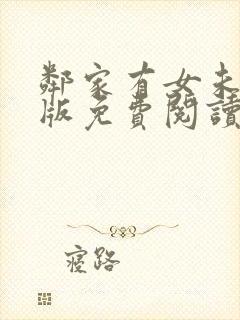 鄰家有女未
版免費閱讀
寢路